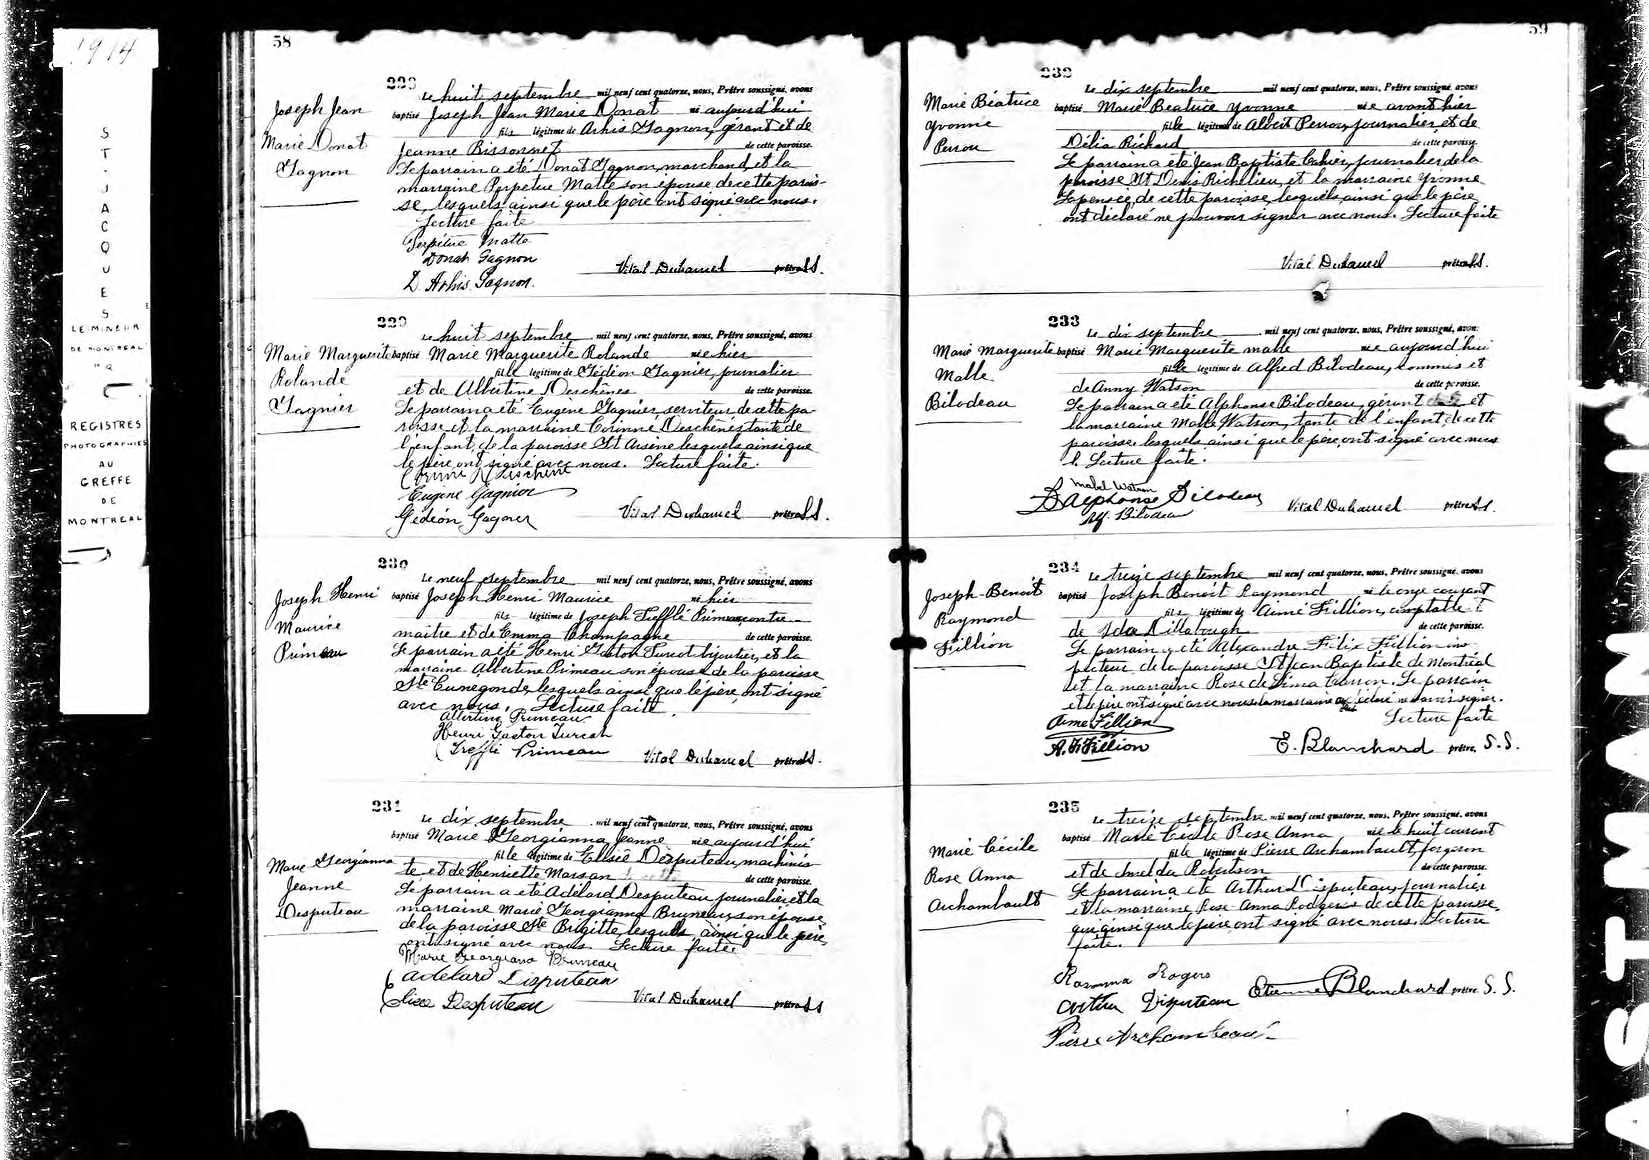 1914
ST-JACQUES
LE MINEUR
DE MONTREAL
REGISTRES
PHOTOGRAPHIES
AU
GREFFE
DE
MONTREAL
58
228
Joseph Jean
Marie Donat
Gagnon
Le huit septembre mil neuf cent quatorze, nous, Prêtre soussigné, avons
baptisé Joseph Jean Marie Donat né aujourd'hui
fils légitime de Arhis Gagnon, gérant et de
Jeanne Bissonnet de cette paroisse.
Le parrain a été Donat Gagnon, marchand, et la
marraine Perpétue Matte son épouse de cette parois-
se, lesquels ainsi que le père ont signé avec nous.
Lecture faite
Perpétue Matte
Donat Gagnon
D. Arhis Gagnon.
Vital Duhamel prêtre S.S.
229
Marie Marguerite
Rolande
Gagnier
Le huit septembre mil neuf cent quatorze, nous, Prêtre soussigné, avons
baptisé Marie Marguerite Rolande née hier
fille légitime de Gédéon Gagnier, journalier
et de Albertine Deschênes de cette paroisse.
Le parrain a été Eugène Gagnier, serviteur de cette pa-
roisse et la marraine Corinne Deschênes tante de
l'enfant, de la paroisse St Arsène lesquels ainsi que
le père ont signé avec nous. Lecture faite.
Corinne Deschêne
Eugène Gagnier
Gédéon Gagner
Vital Duhamel prêtre S.S.
230
Joseph Henri
Maurice
Primeau
Le neuf septembre mil neuf cent quatorze, nous, Prêtre soussigné, avons
baptisé Joseph Henri Maurice né hier
fils légitime de Joseph Trefflé Primeau, contre-
maitre et de Emma Champagne de cette paroisse.
Le parrain a été Henri Gaston Turcot bijoutier, et la
marraine Albertine Primeau son épouse de la paroisse
Ste Cunégonde, lesquels ainsi que le père, ont signé
avec nous. Lecture faite.
Albertine Primeau
Henri Gaston Turcot
Treffle Primeau
Vital Duhamel prêtre S.S.
231
Marie Georgianna
Jeanne
Desputeau
Le dix septembre mil neuf cent quatorze, nous, Prêtre soussigné, avons
baptisé Marie Georgianna Jeanne née aujourd'hui
fille légitime de Elisée Desputeau, machinis
te et de Henriette Marsan de cette paroisse.
Le parrain a été Adélard Desputeau journalier et la
marraine Marie Georgianna Bruneau, son épouse
de la paroisse Ste Brigitte, lesquels ainsi que le père
ont signé avec nous. Lecture faite.
Marie Georgiana Bruneau
Adélard Disputeau
Elisée Desputeau
Vital Duhamel prêtre S.S
59
232
Marie Béatrice
Yvonne
Perron
Le dix septembre mil neuf cent quatorze, nous, Prêtre soussigné, avons
baptisé Marie Béatrice Yvonne née avant hier
fille légitime de Albert Perron, journalier, et de
Délia Richard de cette paroisse.
Le parrain a été Jean Baptiste Cahier, journalier de la
paroisse St Denis Richelieu, et la marraine Yvonne
de cette paroisse, lesquels ainsi que le père
ont déclaré ne pouvoir signer avec nous. Lecture faite
Vital Duhamel prêtre S.S.
233
Marie Marguerite
Malle
Bilodeau
Le dix septembre mil neuf cent quatorze, nous, Prêtre soussigné, avons
baptisé Marie Marguerite Malle née aujourd'hui
fille légitime de Alfred Bilodeau, commis et
de Anny Watson de cette paroisse.
Le parrain a été Alphonse Bilodeau, gérant et
la marraine Malle Watson, tante de l'enfant, de cette
paroisse lesquels ainsi que le père, ont signé avec nous
Lecture faite.
Mabel Watson
Alphonse Bilodeau
Alf. Bilodeau
Vital Duhamel prêtre S.S.
234
Joseph-Benoit
Raymond
Fillion
Le treize septembre mil neuf cent quatorze, nous, Prêtre soussigné, avons
baptisé Joseph Benoit Raymond né le onze courant
fils légitime de Aimé Fillion, comptable et
de Ida Dillabough de cette paroisse.
Le parrain a été Alexandre Félix Fillion ins
pecteur de la paroisse St Jean Baptiste de Montréal
et la marraine Rose de Lima Caron. Le parrain
et le père ont signé avec nous la marraine a déclaré ne savoir signer.
Lecture faite
Aimé Fillion
A. F. Fillion
E. Blanchard prêtre, S.S.
235
Marie Cécile
Rose Anna
Archambault
Le treize septembre mil neuf cent quatorze, nous, Prêtre soussigné, avons
baptisé Marie Cécile Rose Anna née le huit courant
fille légitime de Pierre Archambault, forgeron
et de Imelda Robertson de cette paroisse.
Le parrain a été Arthur Disputeau, journalier
et la marraine Rose Anna Rodgers de cette paroisse
qui ainsi que le père, ont signé avec nous. Lecture
faite.
Rosanna Rogers
Arthur Disputeau
Pierre Archambault
Etienne Blanchard prêtre S.S.